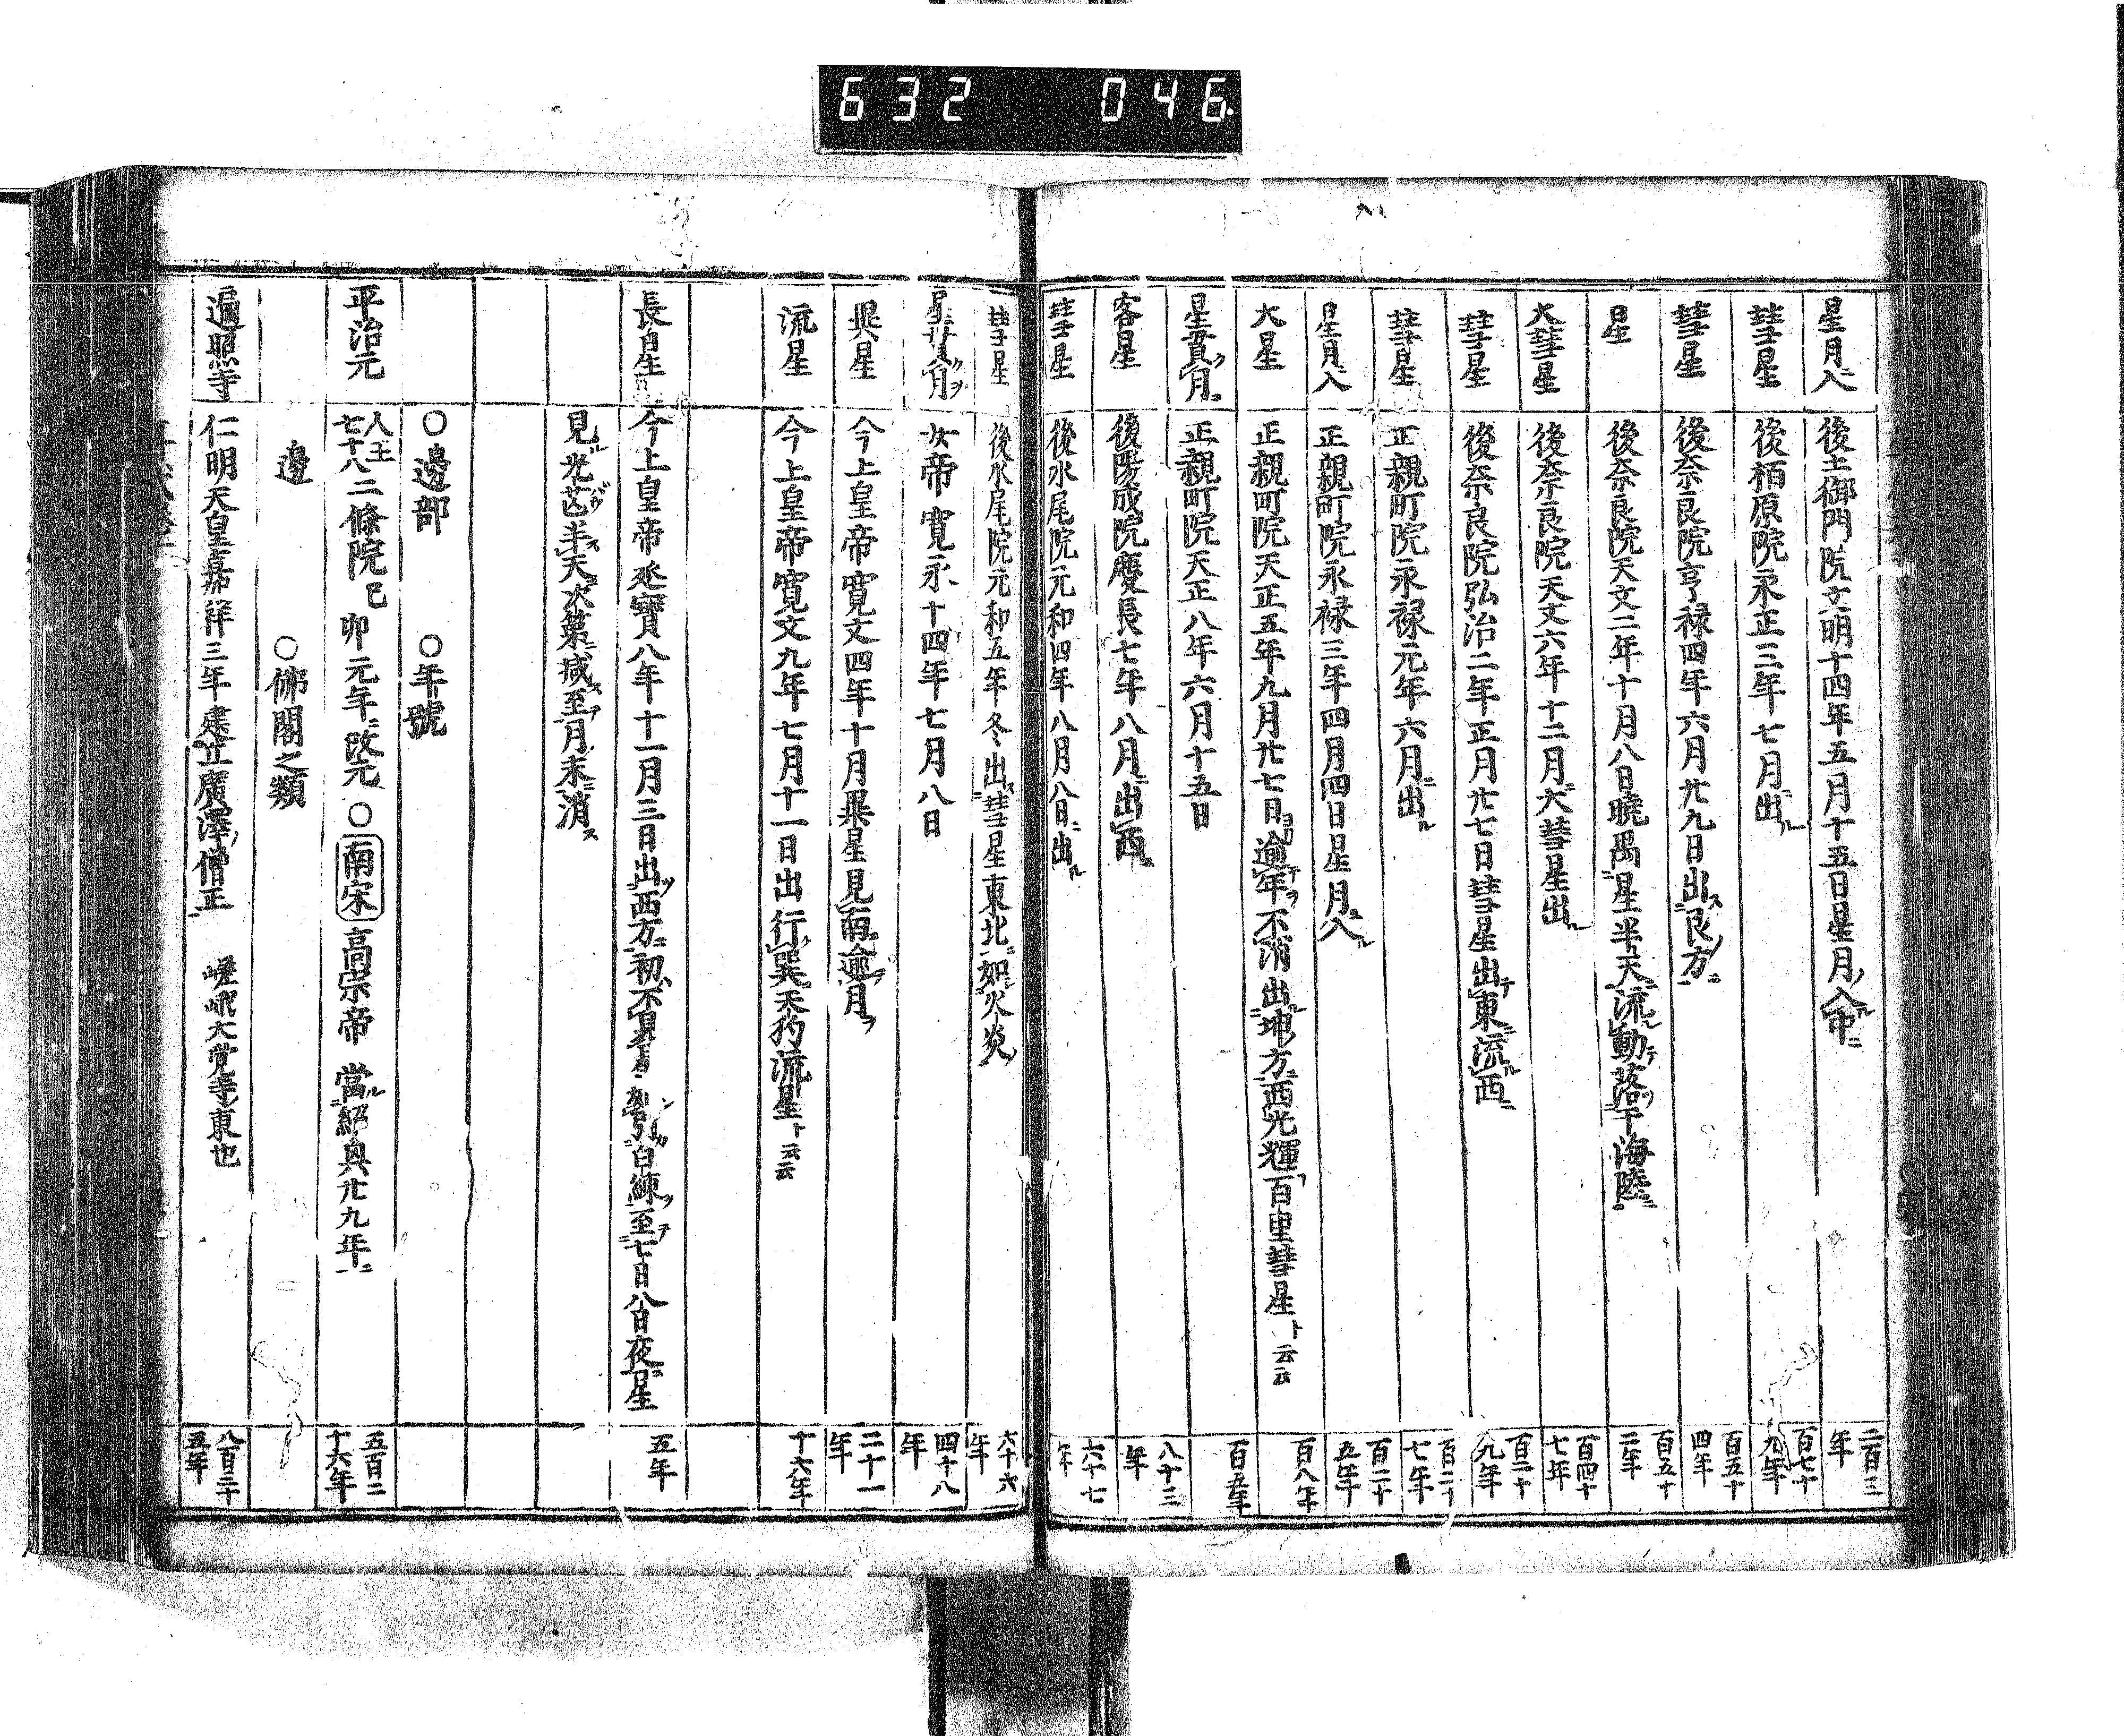 632 046
星月入 後土御門院文明十四年五月十五日星月入中 二百三年
彗星 後栢原院永正三年七月出 百七十九年
彗星 後奈良院亨禄四年六月廿九日出艮方 百五十四年
星 後奈良院天文二年十月八日曉 星半天流動落于海陸 百五十二年
大彗星 後奈良院天文六年十二月大彗星出 百四十七年
彗星 後奈良院弘治二年正月廿七日彗星出東流西 百二十九年
彗星 正親町院永禄元年六月出 百二十七年
星月入 正親町院永禄三年四月四日星月入 百二十五年
大星 正親町院天正五年九月廿七日逾年不消出坤方西光輝百里彗星ト云云 百八年
星貫月 正親町院天正八年六月十五日 百五年
客星 後陽成院慶長七年八月出西 八十三年
彗星 後水尾院元和四年八月八日出 六十七年
彗星 後水尾院元和五年冬出彗星東北如火炎 六十六年
星貫月 女帝寛永十四年七月八日 四十八年
異星 今上皇帝寛文四年十月異星見南逾月 二十一年
流星 今上皇帝寛文九年七月十一日出行巽天狗流星ト云云 十六年
長星 今上皇帝延寶八年十一月三日出西方初不見 引白練至七日八日夜星 五年
見光芒半天次第減至月末消
○邊部 ○年號
平治元 人王七十八二條院己卯元年改元○南宋高宗帝當紹興廿九年 五百二十六年
邊 ○佛閣之類
遍照寺 仁明天皇嘉祥三年建立廣澤僧正 嵯峨大覚寺東也 八百三十五年